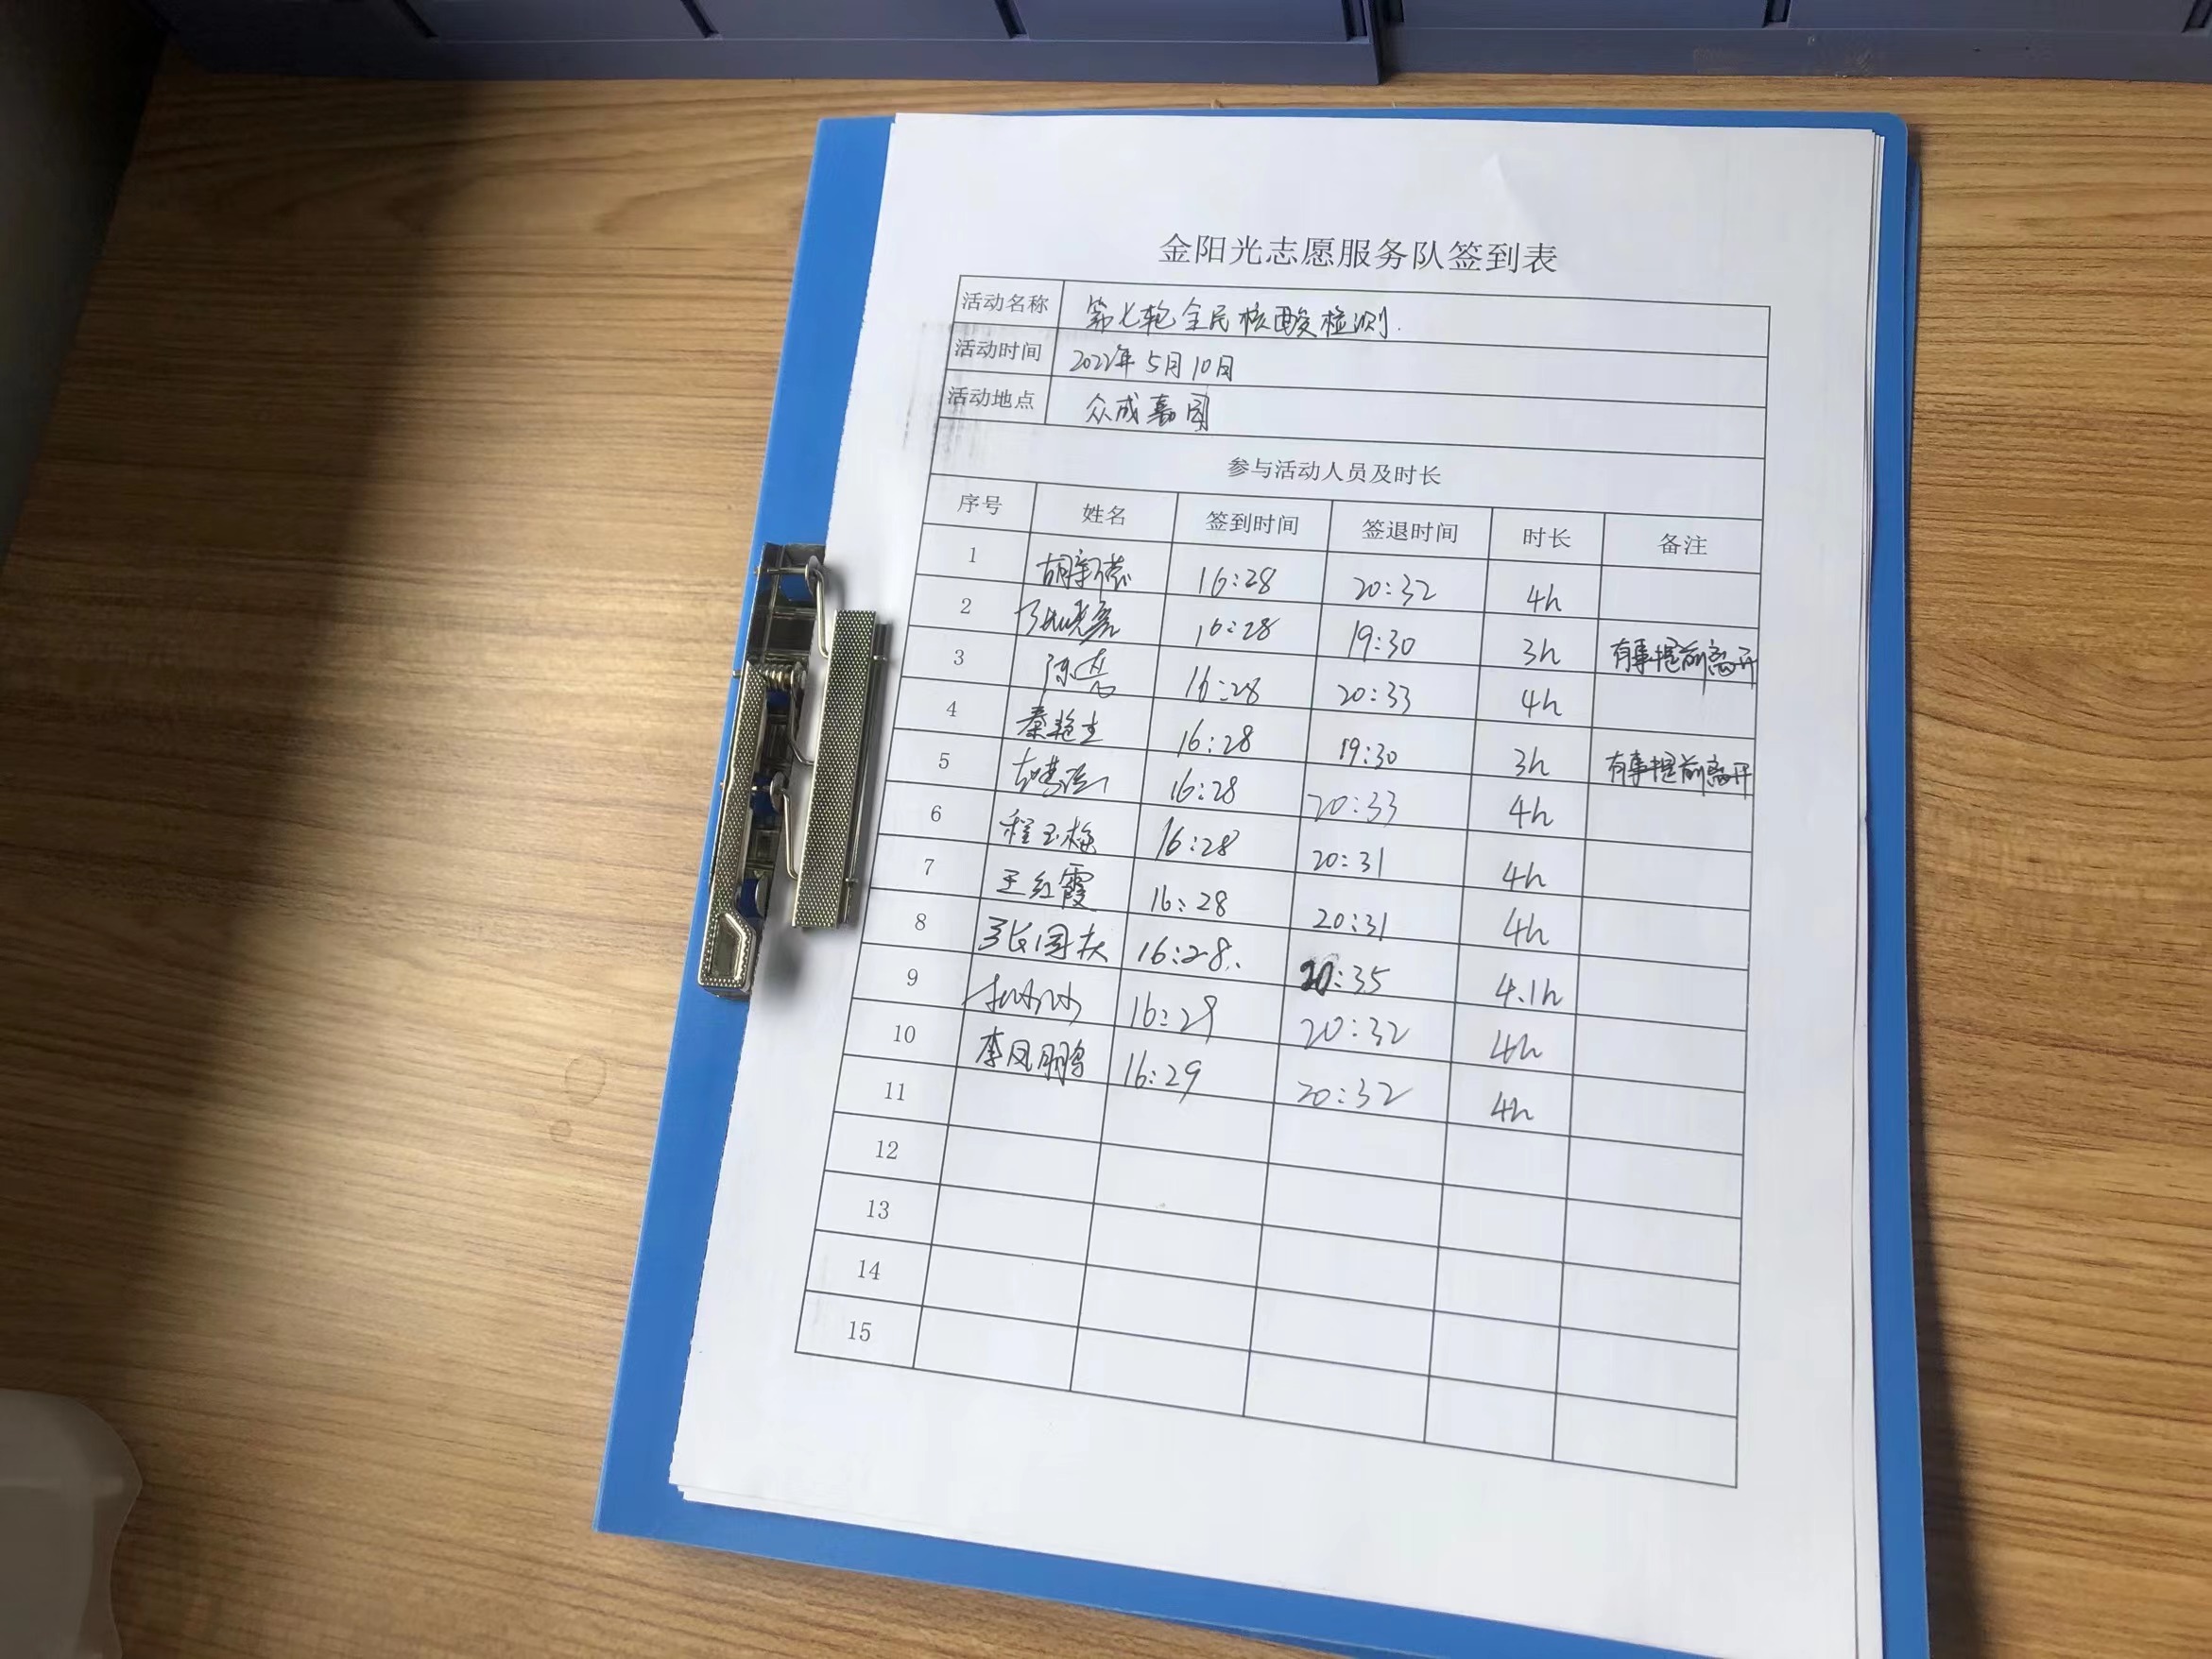 金阳光志愿服务队签到表
活动名称 第七轮全民核酸检测.
活动时间 2022年5月10日
活动地点 众成嘉园
参与活动人员及时长
序号 姓名 签到时间 签退时间 时长 备注
1 16:28 20:32 4h
2 16:28 19:30 3h 有事提前离开
3 16:28 20:33 4h
4 16:28 19:30 3h 有事提前离开
5 16:28 20:33 4h
6 程玉梅 16:28 20:31 4h
7 王红霞 16:28 20:31 4h
8 16:28 20:35 4.1h
9 16:29 20:32 4h
10 李凤鹏 16:29 20:32 4h
11
12
13
14
15